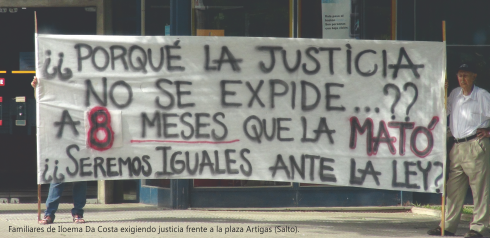 ¿¿PORQUÉ LA JUSTICIA
NO SE EXPIDE...??
A 8 MESES QUE LA MATÓ
¿¿SEREMOS IGUALES ANTE LA LEY?
Familiares de Iloema Da Costa exigiendo justicia frente a la plaza Artigas (Salto).